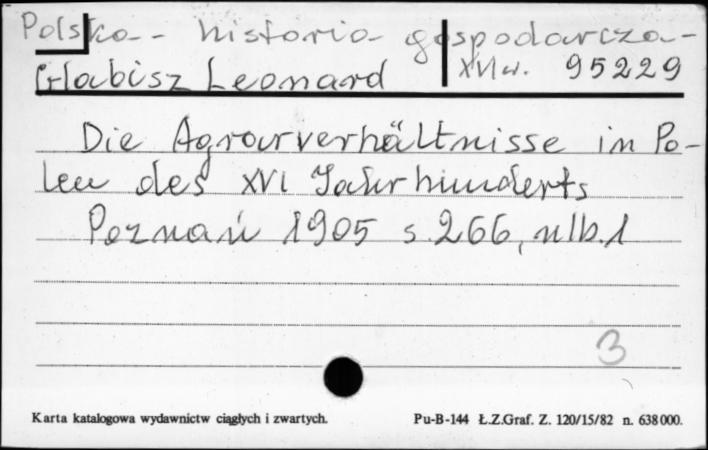 Polska - historia gospodarcza -
XVI w. 95229
Glabisz Leonard
Die Agrarverhältnisse im Po-
len des XVI Jahrhunderts
Poznań 1905 s. 266, nlb. 1
3
Karta katalogowa wydawnictw ciągłych i zwartych. Pu-B-144 Ł.Z.Graf. Z. 120/15/82 n. 638000.